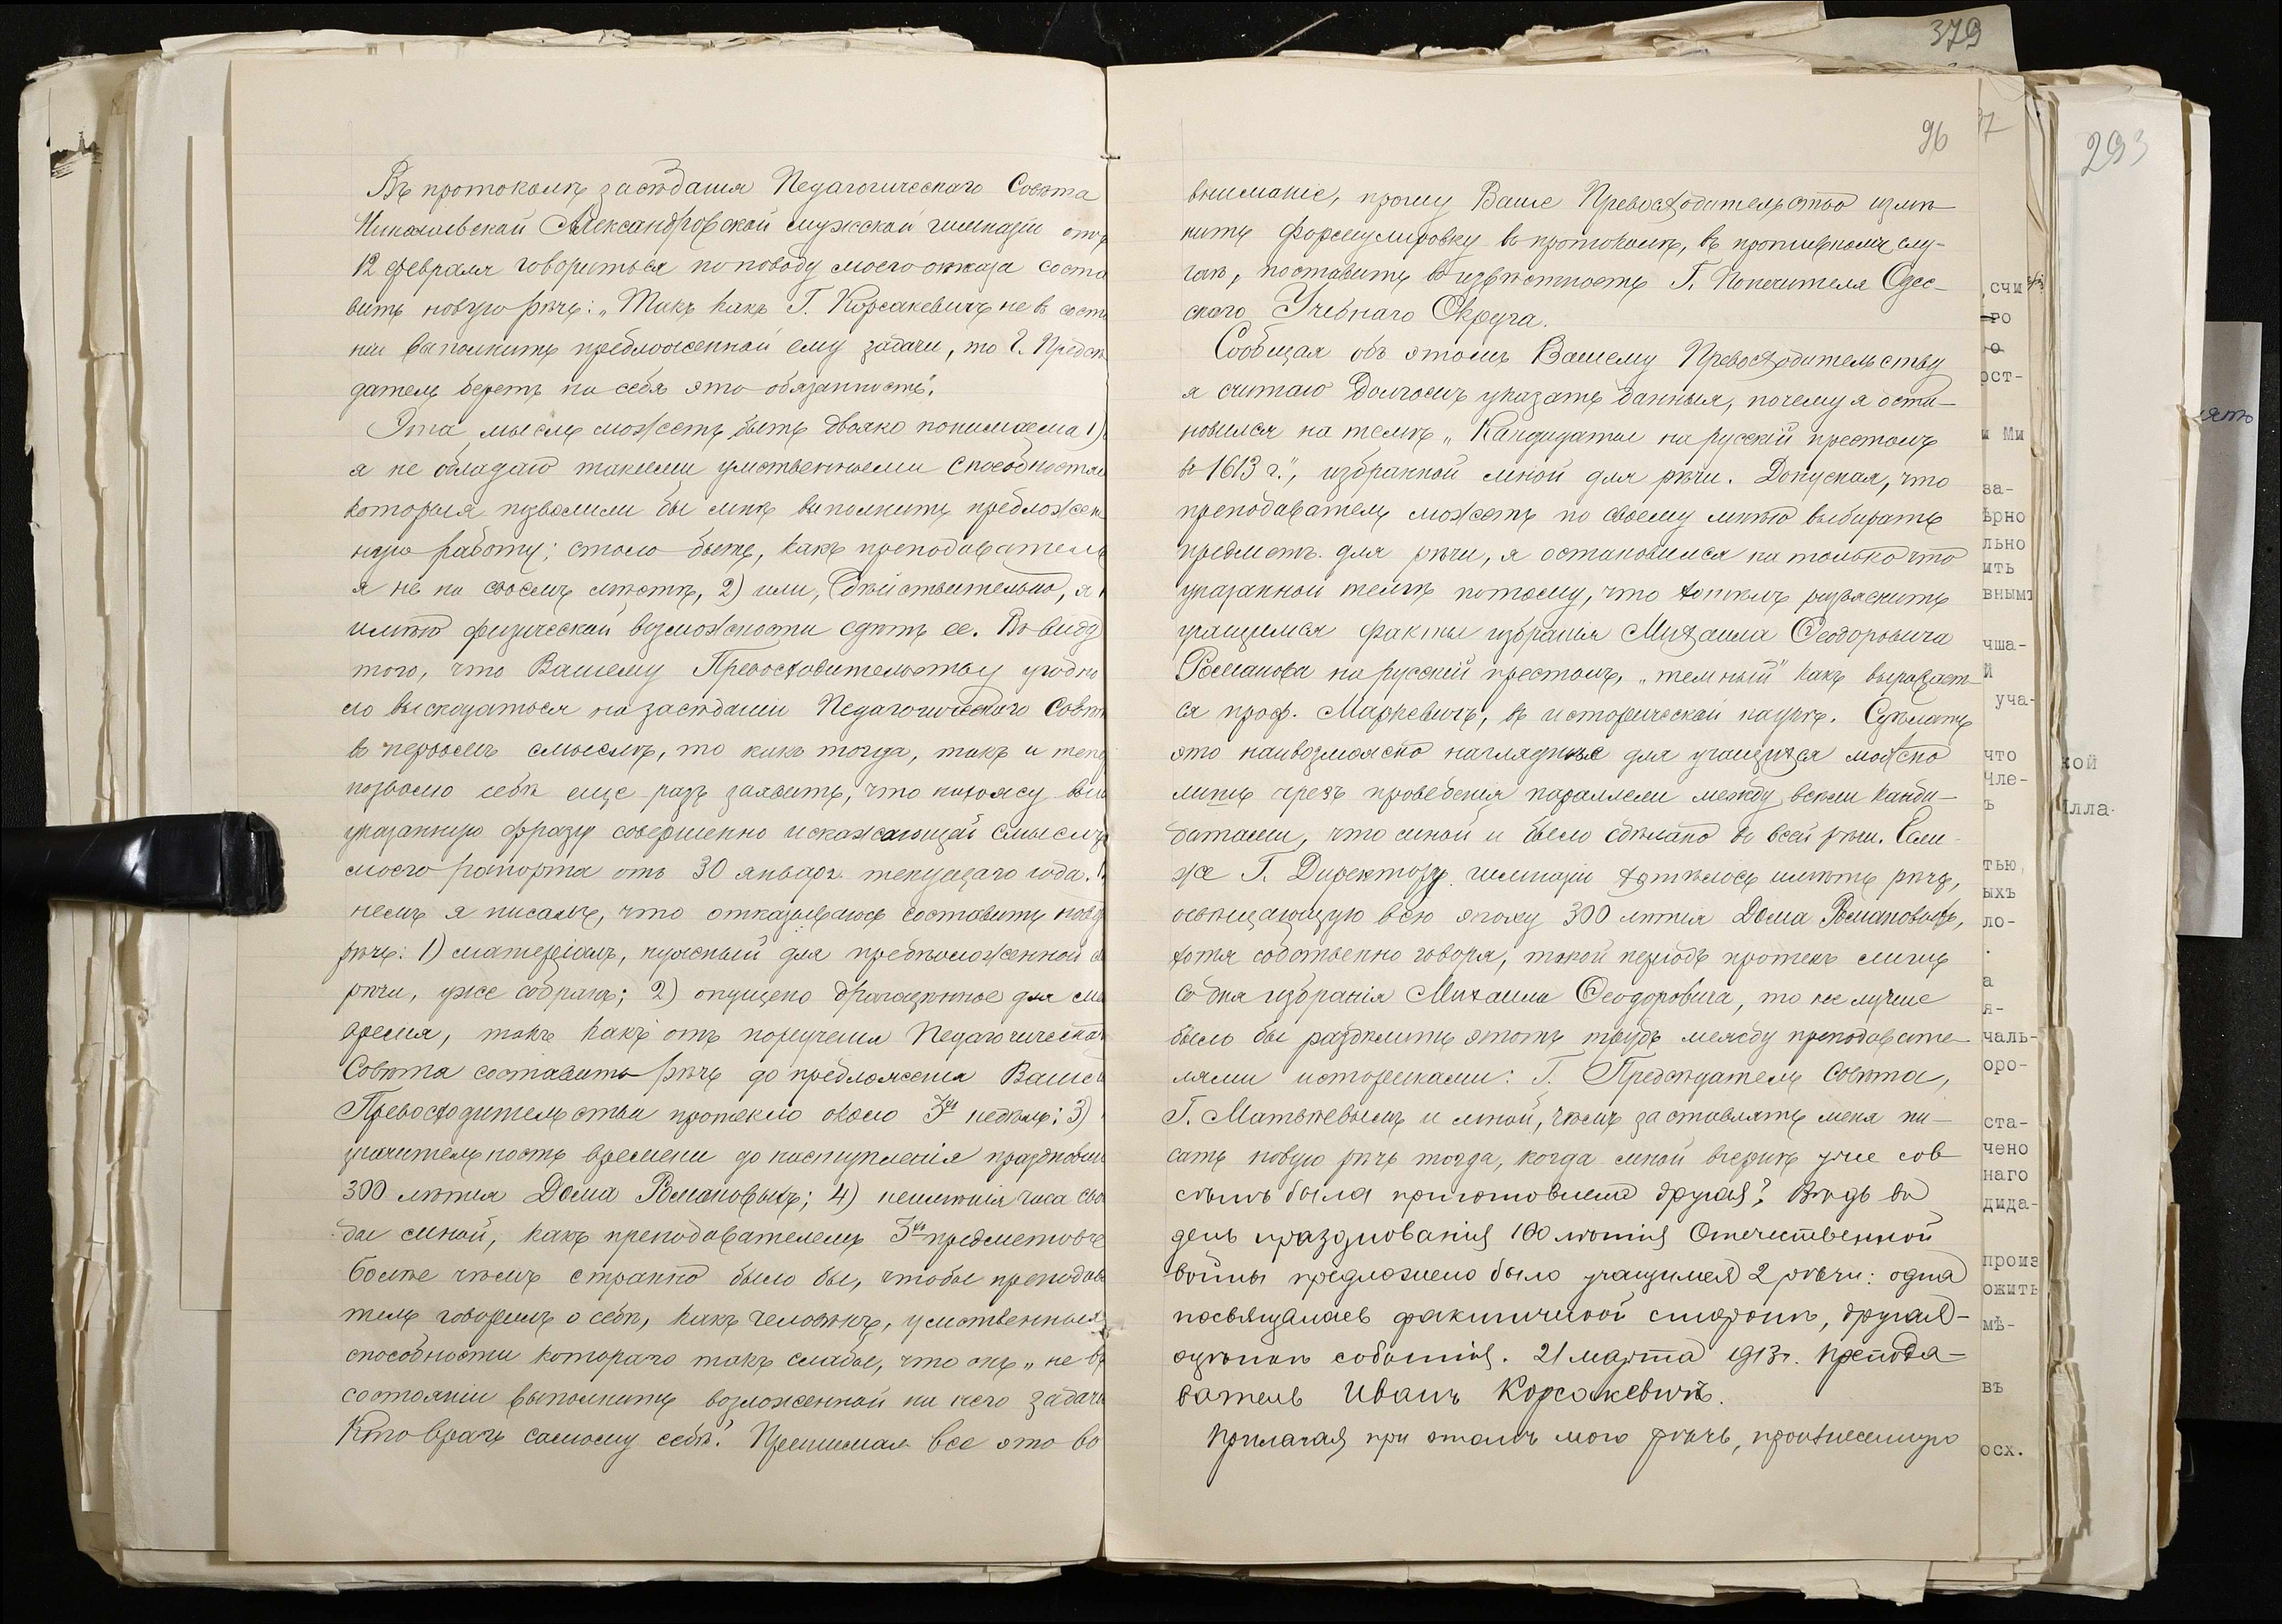 Въ протоколѣ засѣданія Педагогическаго Совѣта
Николаевской Александровской мужской гимназіи отъ
12 февраля говориться по поводу моего отказа соста
вить новую рѣчь: „Такъ какъ Г. Корсакевичъ не въ состо
ніи выполнить предложенной ему задачи, то Г. Предсѣ
датель беретъ на себя это обязанность".
Эта мысль можетъ быть двояко понимаема 1)
я не обладаю такими умственными способностям
которыя позволили бы мнѣ выполнить предложен
ную работу; стало быть, какъ преподаватель
я не на своемъ мѣстѣ, 2) или, дѣйствительно, я н
имѣю физической возможности сдѣть ее. Въ виду
того, что Вашему Превосходительству угодно
ло высказаться на засѣданіи Педагогическаго Совѣт
въ первомъ смыслѣ, то какъ тогда, такъ и тепе
позволю себѣ еще разъ заявить, что нахожу выш
указанную фразу совершенно искажающій смыслъ
моего рапорта отъ 30 январ. текущаго года.
немъ я писалъ, что отказываюсь составить нову
рѣчь: 1) матеріалъ, нужный для предположенной
рѣчи, уже собранъ; 2) опущено драгоцѣнное для
время, такъ какъ отъ порученія Педагогическа
Совѣта составить рѣчь до предложенія Ваше
Превосходительства протекло около 3хъ недѣль; 3)
значительность времени до наступленія празднова
300 лѣтія Дома Романовыхъ; 4) неимѣнія часа сво
ды мной, какъ преподавателемъ 3хъ предметовъ
болѣе чѣмъ странно было бы, чтобы преподава
тель говорилъ о себѣ, какъ человѣкѣ, умственныя
способности котораго такъ слабы, что онъ „не въ
состояніи выполнить возложенной на него задачи
Кто врагъ самому себѣ? Принимая все это во
379
96
внимание, прошу Ваше Превосходительство измѣ-
нить формулировку въ протоколѣ, въ противномъ слу-
чаѣ, поставить въ извѣстность Г. Попечителя Одес-
скаго Учебнаго Округа.
Сообщая объ этомъ Вашему Превосходительству
я считаю долгомъ указать данныя, почему я оста-
новился на темѣ „Кандидаты на русскій престолъ
въ 1613 г.", избранной мной для рѣчи. Допуская, что
преподаватель можетъ по своему выбирать
предметъ для рѣчи, я остановился на только что
указанной темѣ потому, что хотѣлъ разъяснить
учащимся факты избранія Михаила Ѳеодоровича
Романова на русскій престолъ, „темный" какъ выражает-
ся проф. Маркевичъ, въ исторической наукѣ. Сдѣлать
это наивозможно нагляднѣе для учащихся можно
лишь чрезъ проведенія параллели между всеми канди-
датами, что мной и было сдѣлано во всей рѣчи. Если
же Г. Директору гимназіи хотѣлось имѣть рѣчь,
освѣщающую всю эпоху 300 лѣтія Дома Романовыхъ,
хотя собственно говоря, такой періодъ протекъ лишь
со дня избранія Михаила Ѳеодоровича, то не лучше
было бы раздѣлить этотъ трудъ между преподавате-
лями историками: Г. Предсѣдатель Совѣта,
Г. Матвѣевымъ и мной, чѣмъ заставлять меня пи-
сать новую рѣчь тогда, когда мной уже сов
сѣмъ была приготовлена другая? Вѣдь въ
день празднованія 100 лѣтія Отечественной
войны предложено было учащимся 2 рѣчи: одна
посвящалась фактичной сторонѣ, другая-
оцѣнкѣ событія. 21 марта 1913 г. Препода-
ватель Иванъ Корсакевичъ.
Прилагая при этомъ мою рѣчь, произнесенную
293
37
,счи
го
о
ост-
и Ми
за-
ѣрно
льно
ить
вным
чша-
й
уча-
что
Чле-
ъ
тью
ыхъ
ло-
а
я-
чаль-
оро-
ста-
чено
наго
дида-
произ
ожить
мѣ-
въ
осх.
кой
лла-
ять